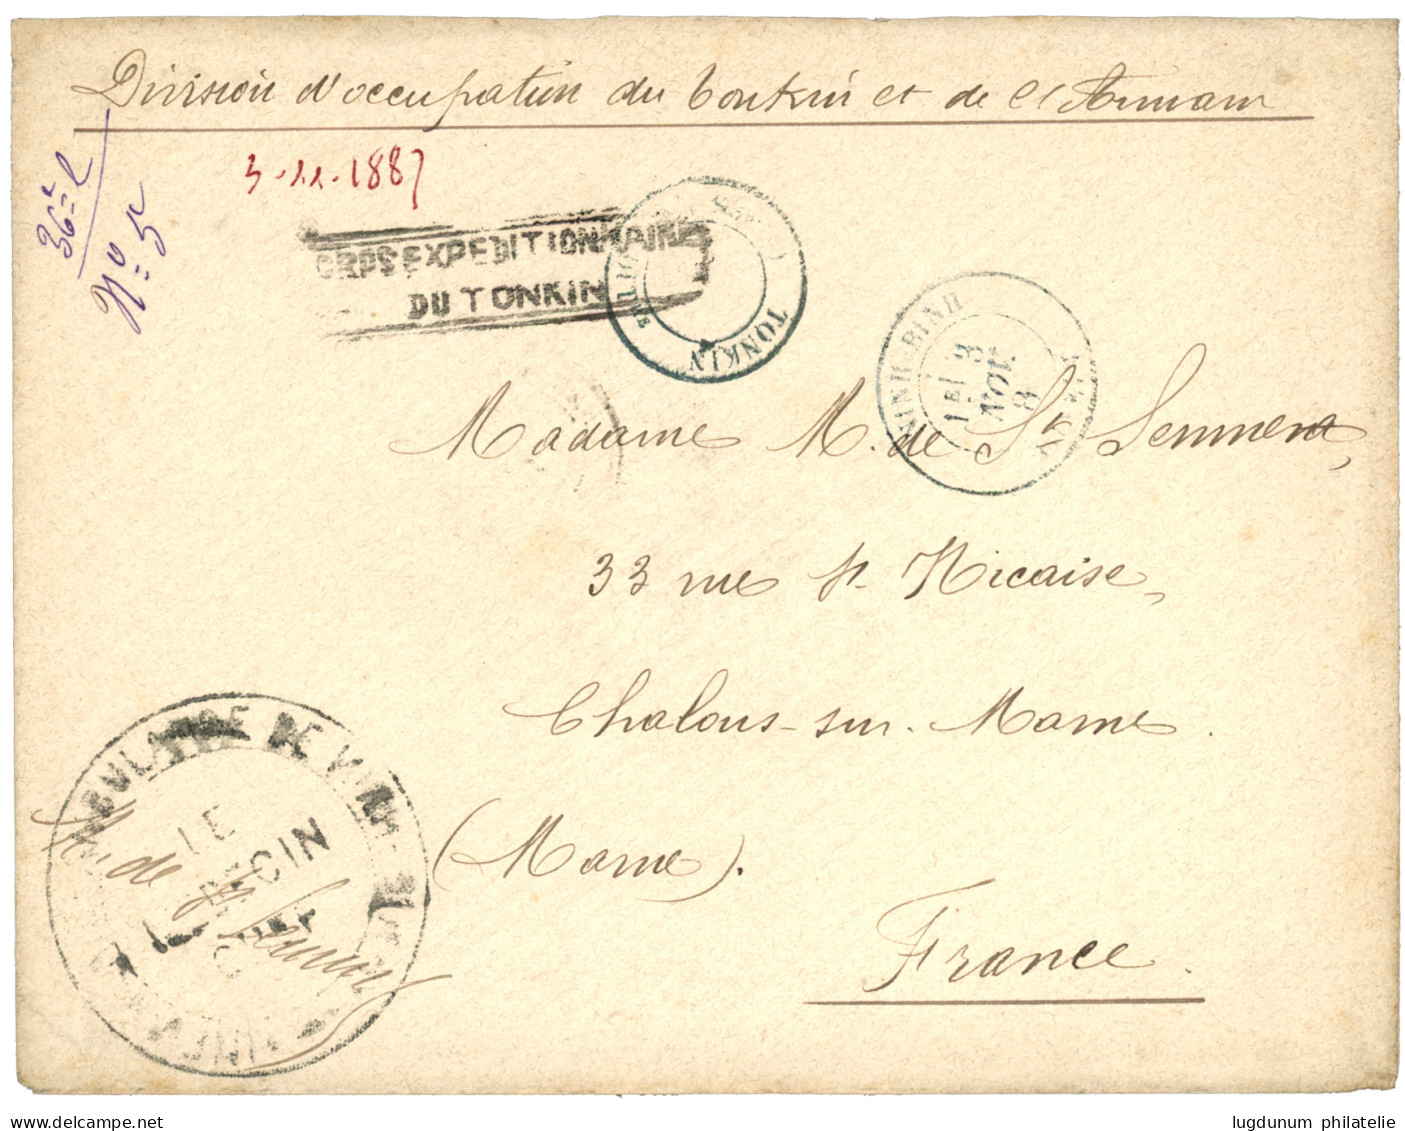 Division d'occupation du Tonkin et de l'Annam
36e = l
No = 5
3.11.1887
CORPS EXPEDITIONNAIRE
DU TONKIN
TONKIN
NINH-BINH
1E 3
NOV.
8
Madame M. de St Semmera,
33 rue St. Nicaise,
Chalons-sur-Marne.
(Marne).
France.
AMBULANCE DE
LE
MEDECIN
CHEF
M. de St
lugdunum philatelie